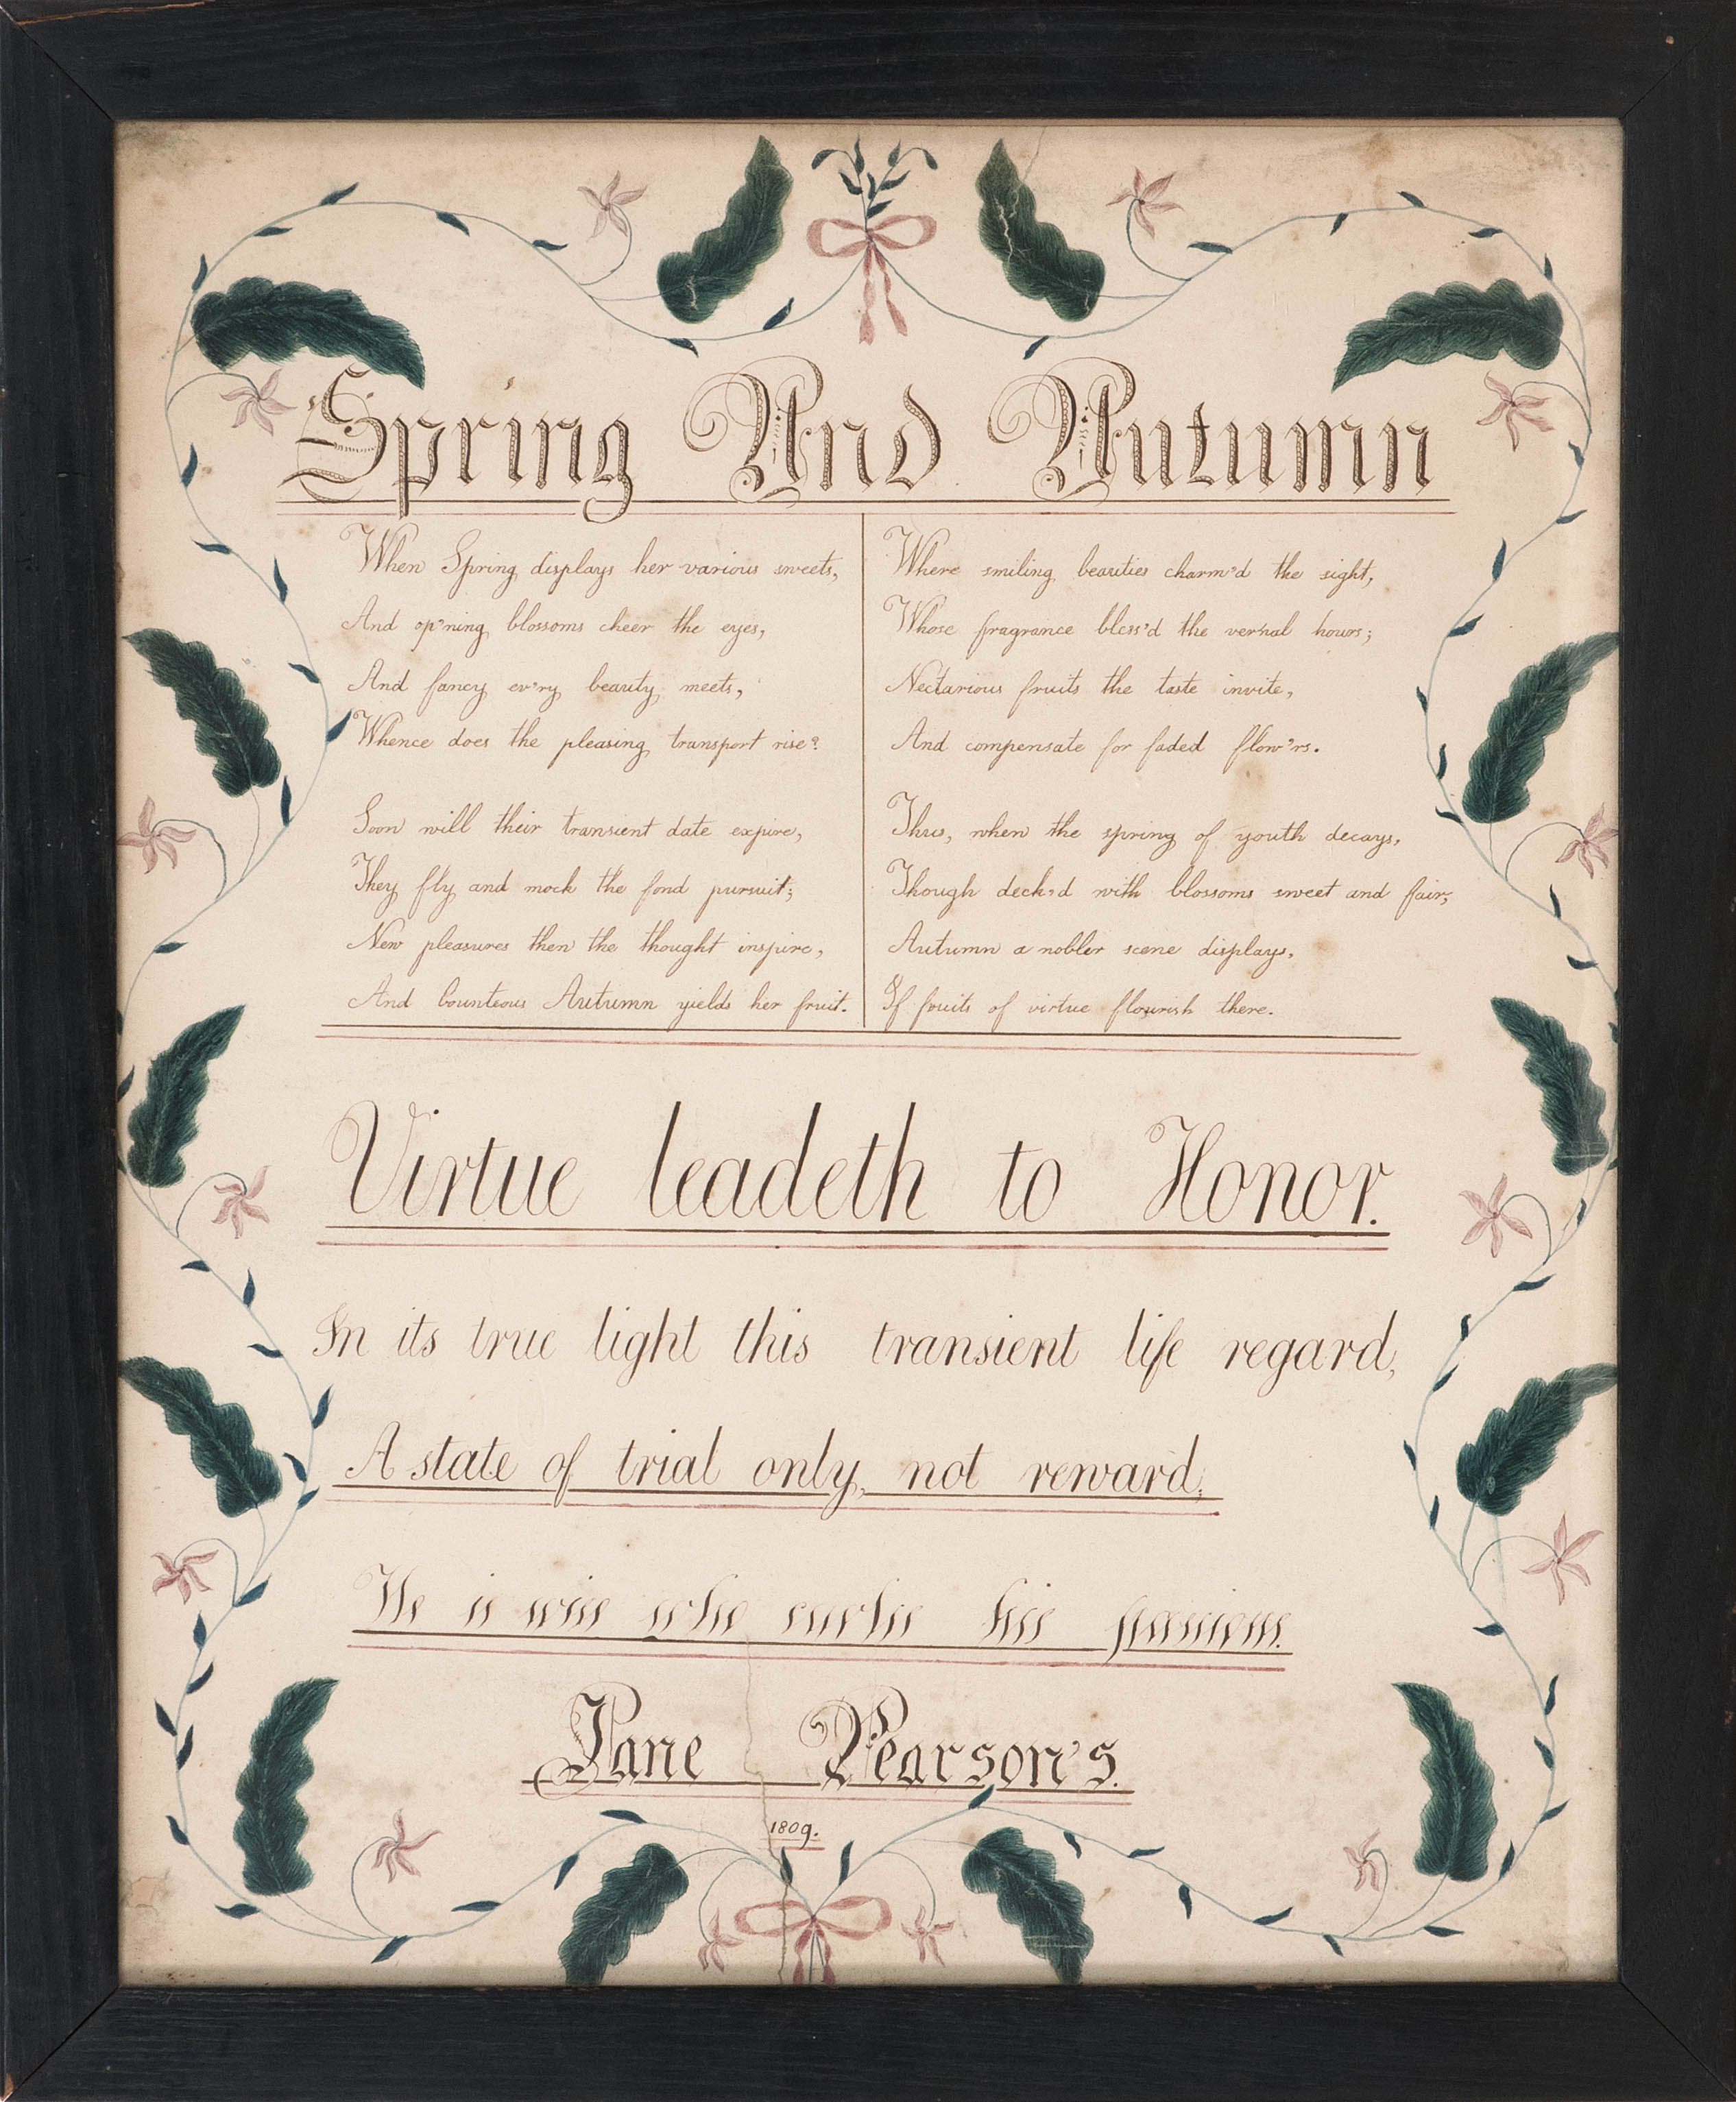 Spring And Autumn
When Spring displays her various sweets,
And op'ning blossoms cheer the eyes,
And fancy ev'ry beauty meets,
Whence does the pleasing transport rise?
Soon will their transient date expire,
They fly and mock the fond pursuit;
New pleasures then the thought inspire,
And bounteous Autumn yields her fruit.
Where smiling beauties charm'd the sight,
Whose fragrance bless'd the vernal hours;
Nectarious fruits the taste invite,
And compensate for faded flow'rs.
Thus, when the spring of youth decays,
Though deck'd with blossoms sweet and fair,
Autumn a nobler scene displays,
If fruits of virtue flourish there.
Virtue leadeth to Honor.
In its true light this transient life regard,
A state of trial only, not reward;
He is wise who curbs his passions.
Jane Pearson's.
1809.